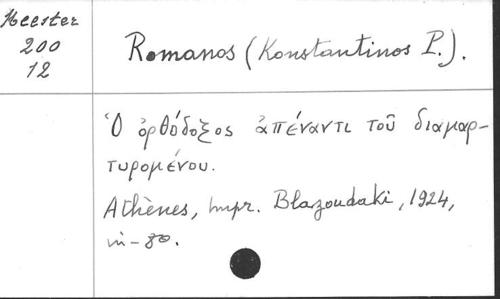 Meester
200
12
Romanos (Konstantinos P.).
Ὁ ὀρθόδοξος ἀπέναντι τοῦ διαμαρ-
τυρομένου.
Athènes, impr. Blazoudaki, 1924,
in-8o.